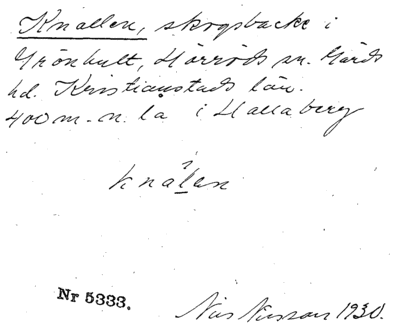 Knallen, skogsbacke i
Grönhult, Hörröds sn. Gärds
hd. Kristianstads län.
400 m. n. la i Hallaberg
knålen
Nr 5333.
Nils Nilsson 1930.